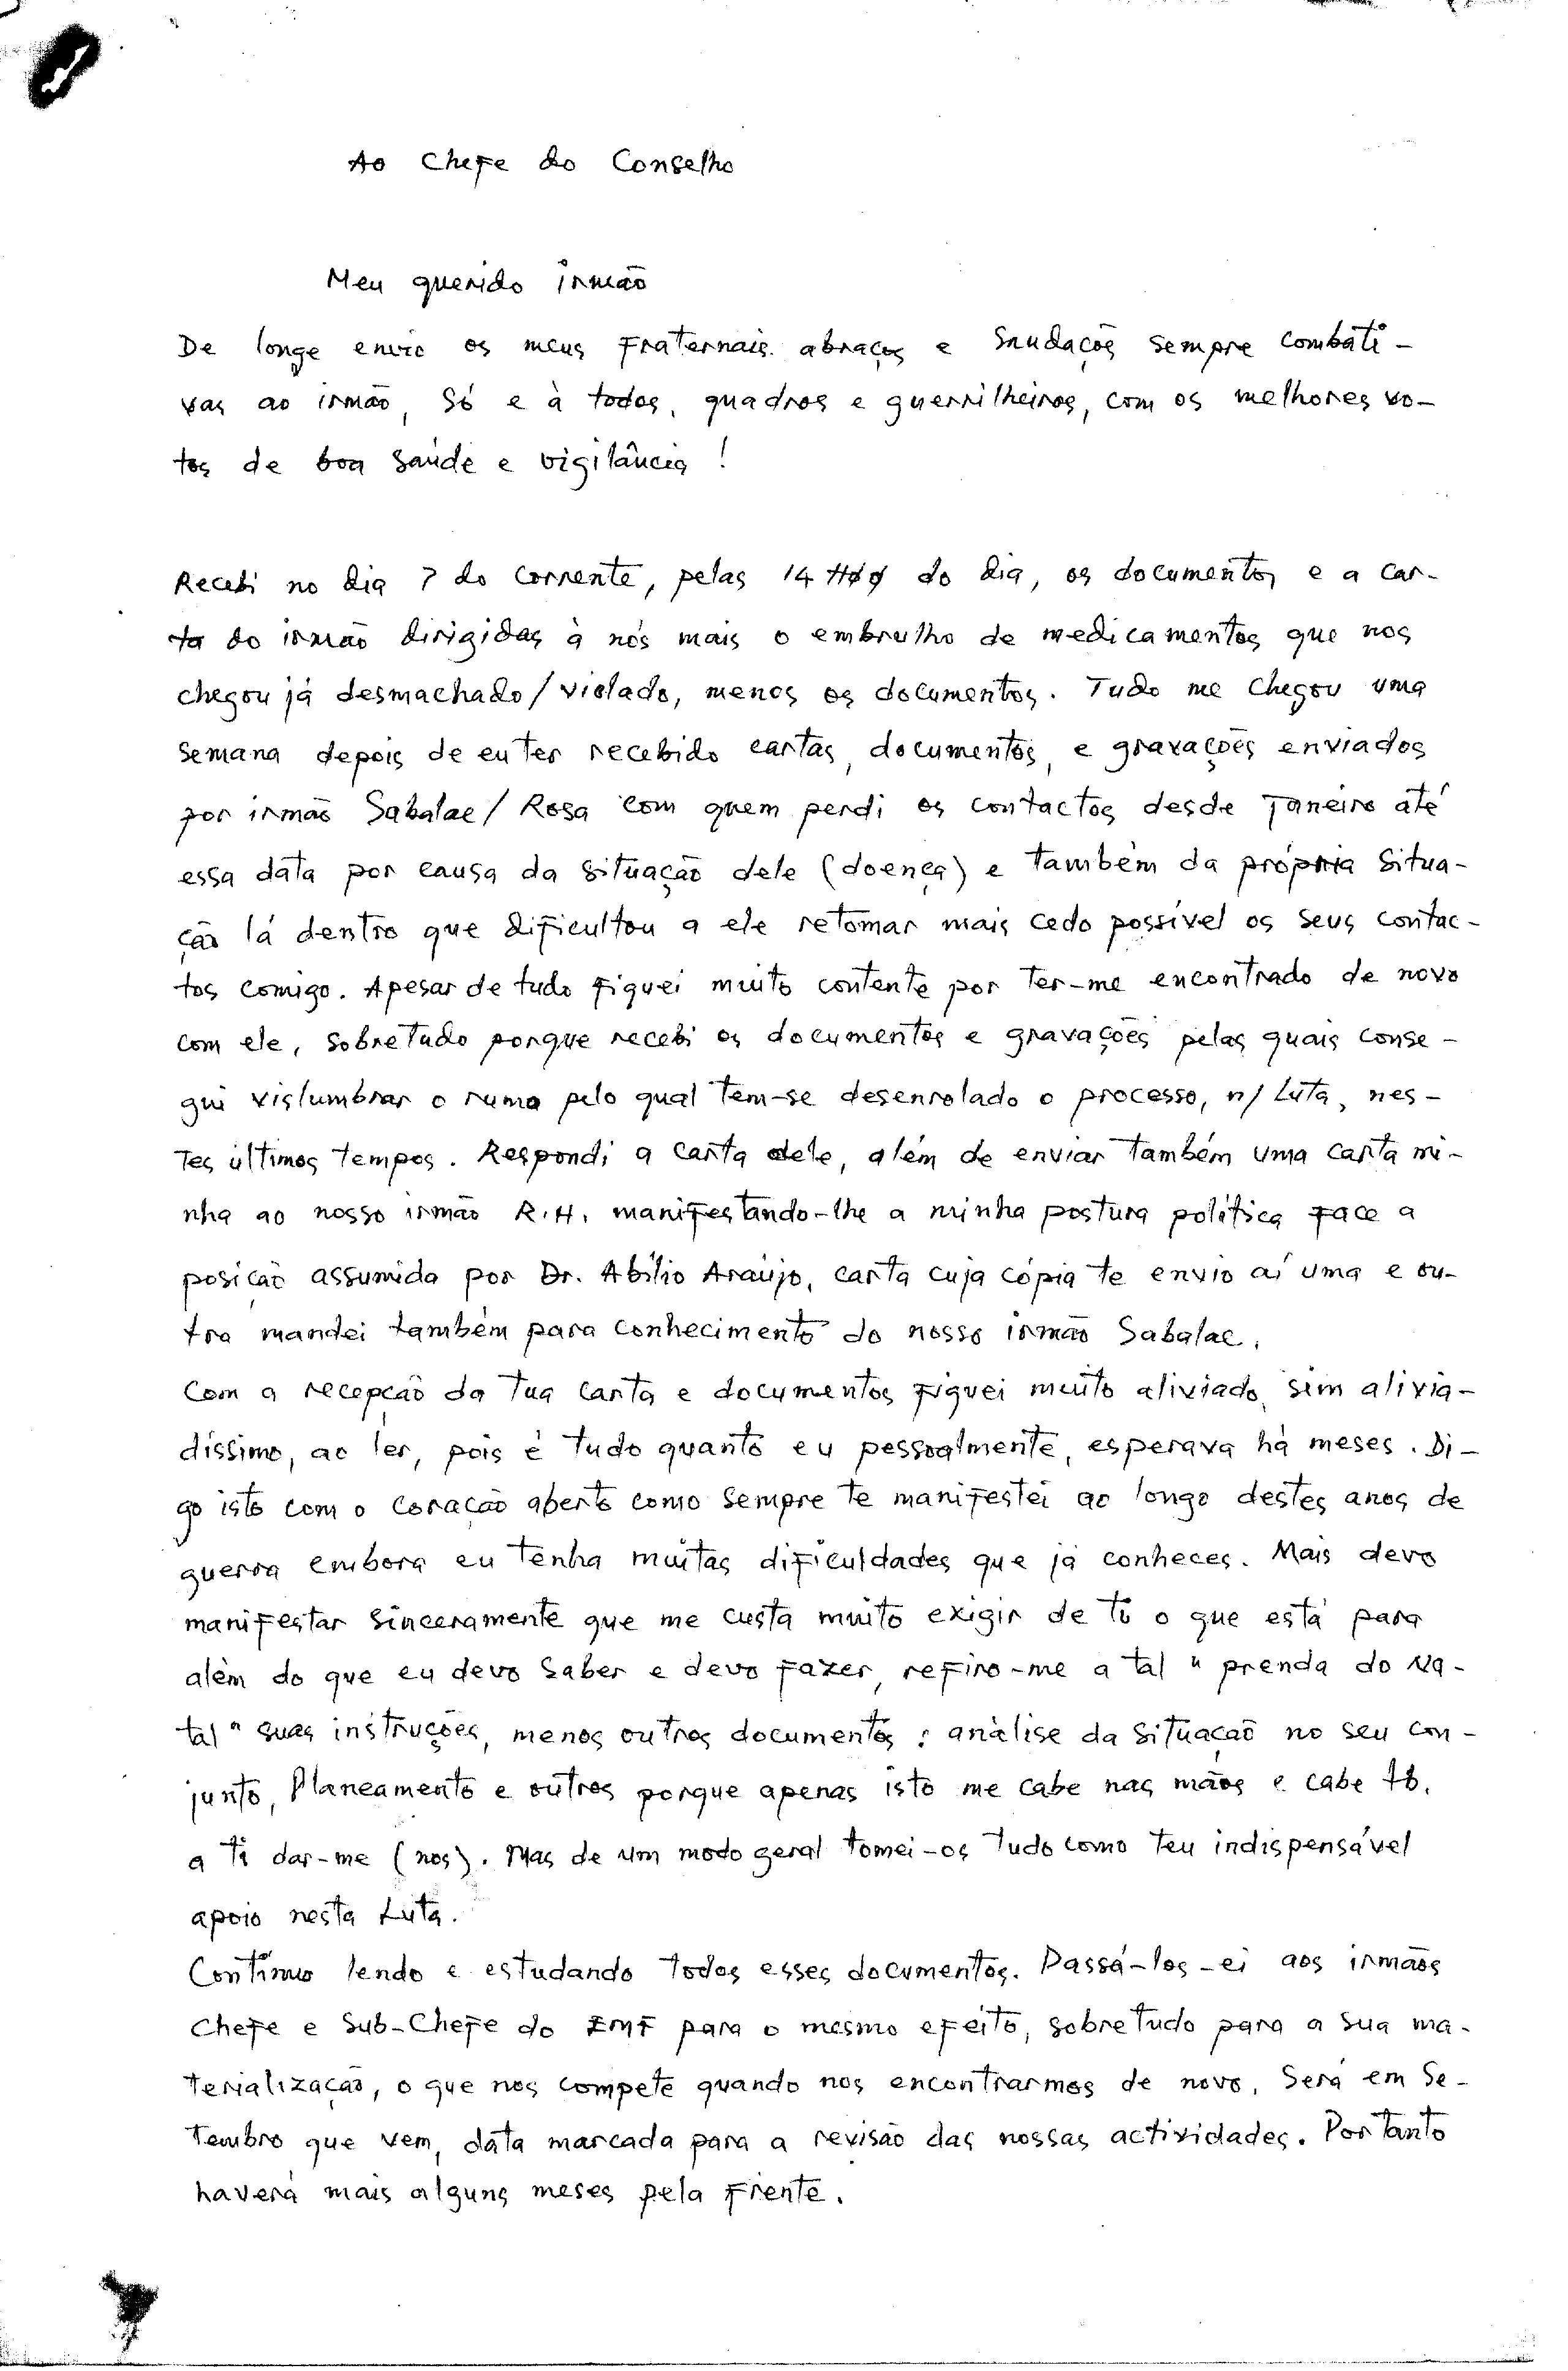 Ao Chefe do Conselho
Meu querido irmão
De longe envio os meus fraternais abraços e saudaçoẽs sempre combati-
vas ao irmão, Só e à todos, quadros e guerrilheiros, com os melhores vo-
tos de boa saúde e vigilância!
Recebi no dia 7 do corrente, pelas 14 H00 do dia, os documentos e a car-
ta do irmão dirigidas à nós mais o embrulho de medicamentos que nos
chegou já desmachado/violado, menos os documentos. Tudo me chegou uma
semana depois de eu ter recebido cartas, documentos, e gravações enviados
por irmão Sabalae/Rosa com quem perdi os contactos desde Janeiro até
essa data por causa da situação dele (doença) e também da própria situa-
ção lá dentro que dificultou a ele retomar mais cedo possível os seus contac-
tos comigo. Apesar de tudo fiquei muito contente por ter-me encontrado de novo
com ele, sobretudo porque recebi os documentos e gravações pelas quais conse-
gui vislumbrar o rumo pelo qual tem-se desenrolado o processo, n/ Luta, nes-
tes últimos tempos. Respondi a carta dele, além de enviar também uma carta mi-
nha ao nosso irmão R.H. manifestando-lhe a minha postura política face a
posição assumida por Dr. Abílio Araújo, carta cuja cópia te envio aí uma e ou-
tra mandei também para conhecimento do nosso irmão Sabalae.
Com a recepção da tua carta e documentos fiquei muito aliviado, sim alivia-
díssimo, ao ler, pois é tudo quanto eu pessoalmente, esperava há meses. Di-
go isto com o coração aberto como sempre te manifestei ao longo destes anos de
guerra embora eu tenha muitas dificuldades que já conheces. Mais devo
manifestar sinceramente que me custa muito exigir de ti o que está para
além do que eu devo saber e devo fazer, refiro-me a tal "prenda do Na-
tal" suas instruções, menos outros documentos: análise da situação no seu con-
junto, Planeamento e outros porque apenas isto me cabe nas mãos e cabe tb.
a ti dar-me (nos). Mas de um modo geral tomei-os tudo como teu indispensável
apoio nesta Luta.
Continuo lendo e estudando todos esses documentos. Passá-los-ei aos irmãos
Chefe e Sub-Chefe do EMF para o mesmo efeito, sobretudo para a sua ma-
terialização, o que nos compete quando nos encontrarmos de novo. Será em Se-
tembro que vem, data marcada para a revisão das nossas actividades. Portanto
haverá mais alguns meses pela frente.